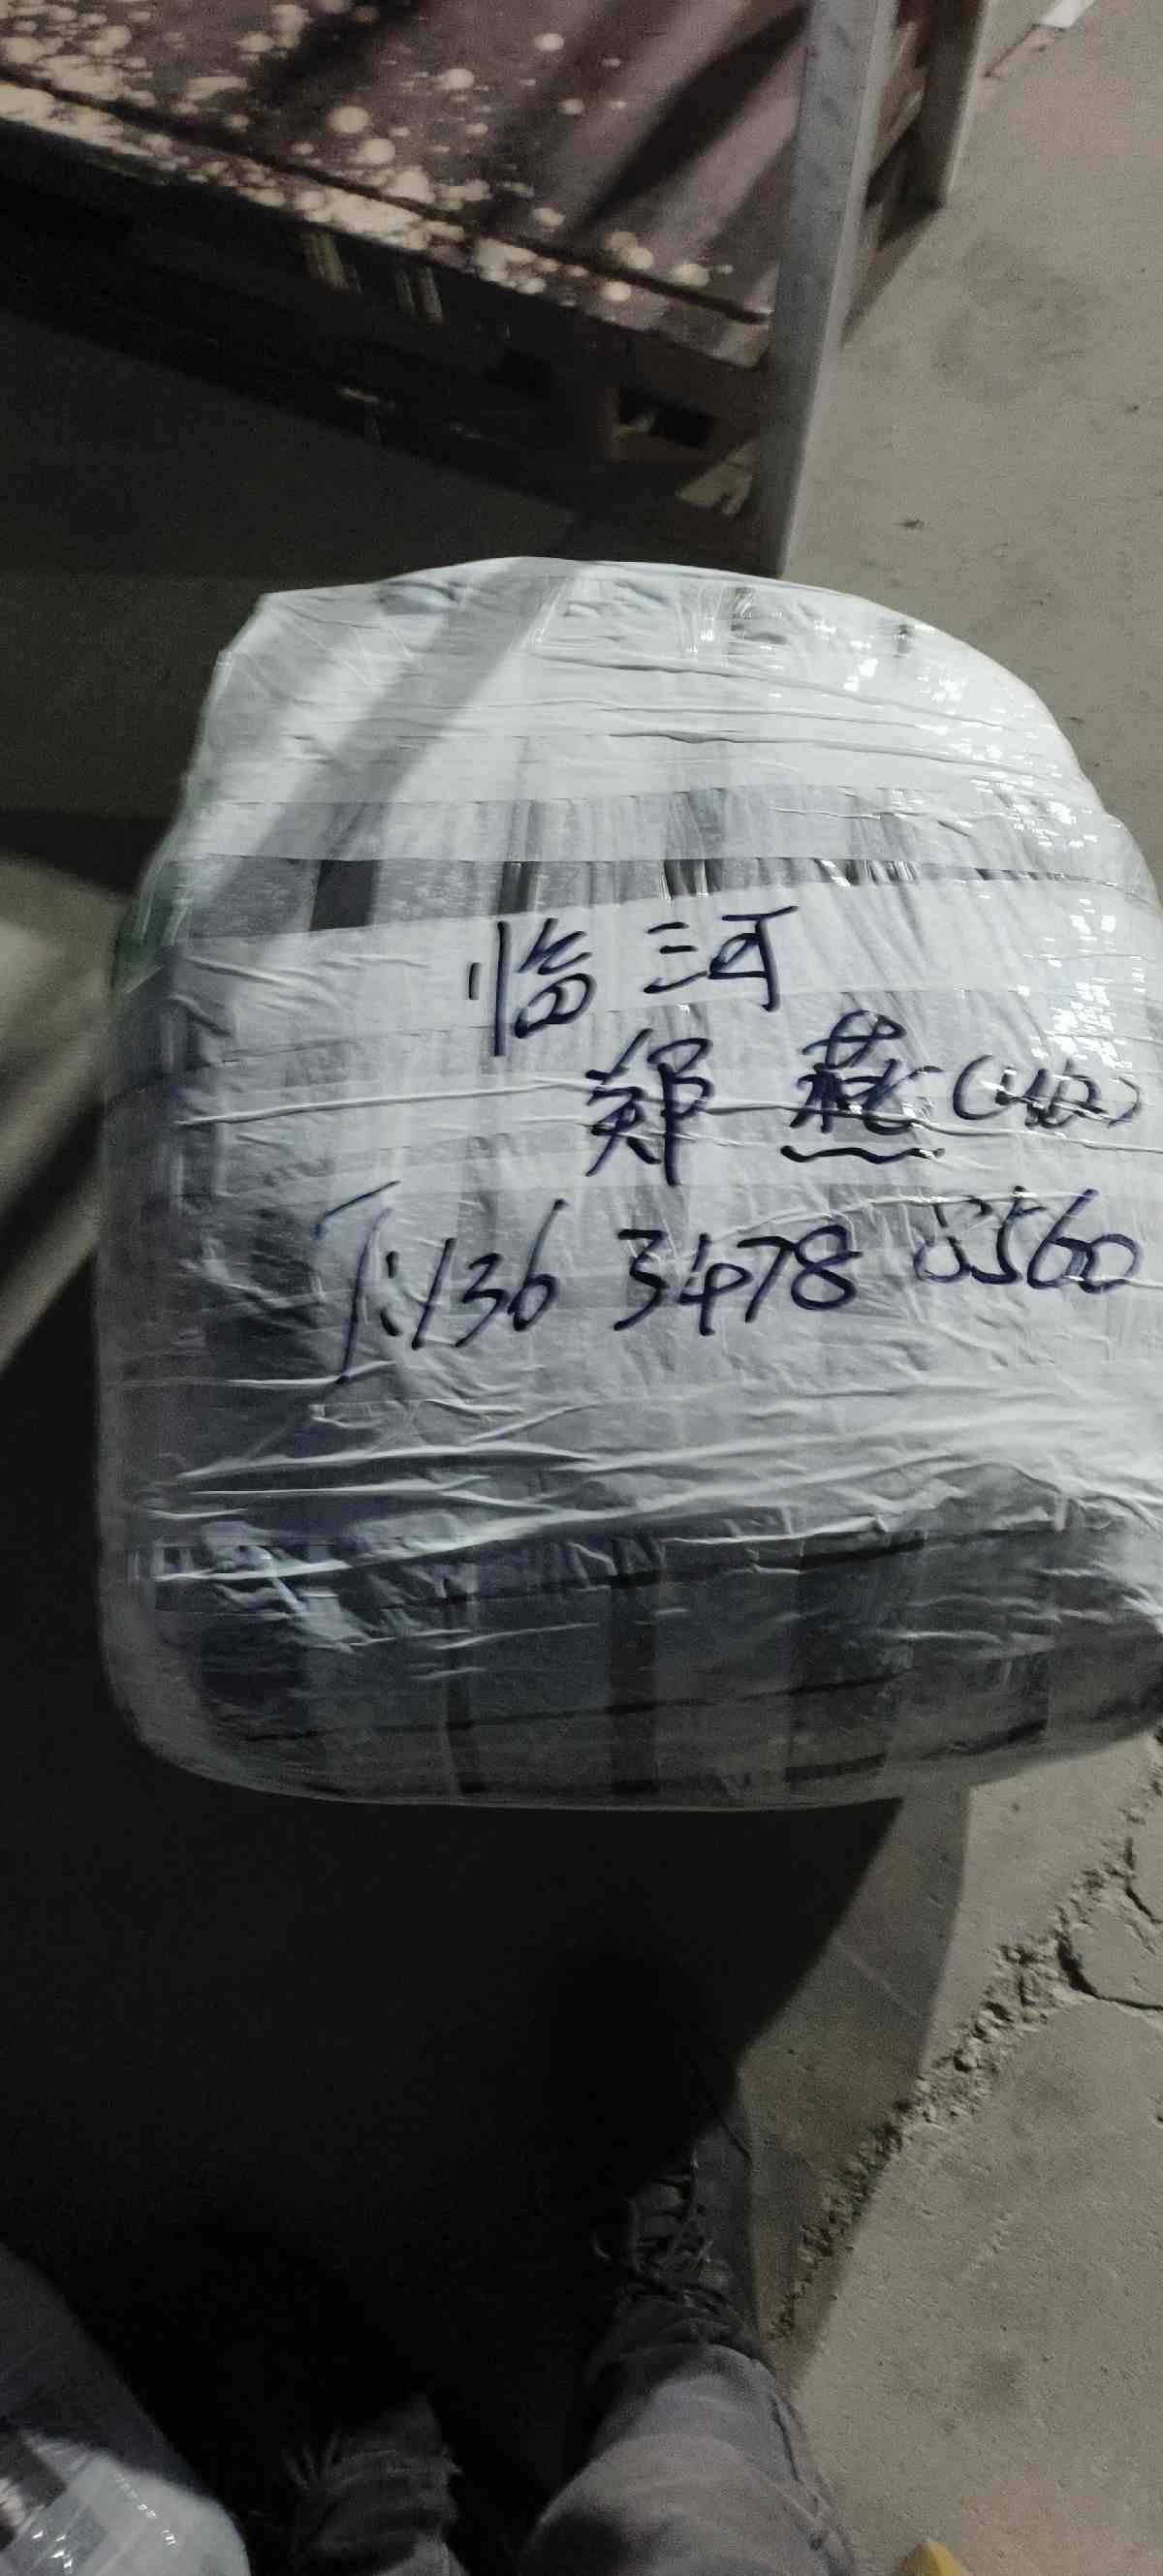 临河
郑燕(40)
T:136 3478 8560